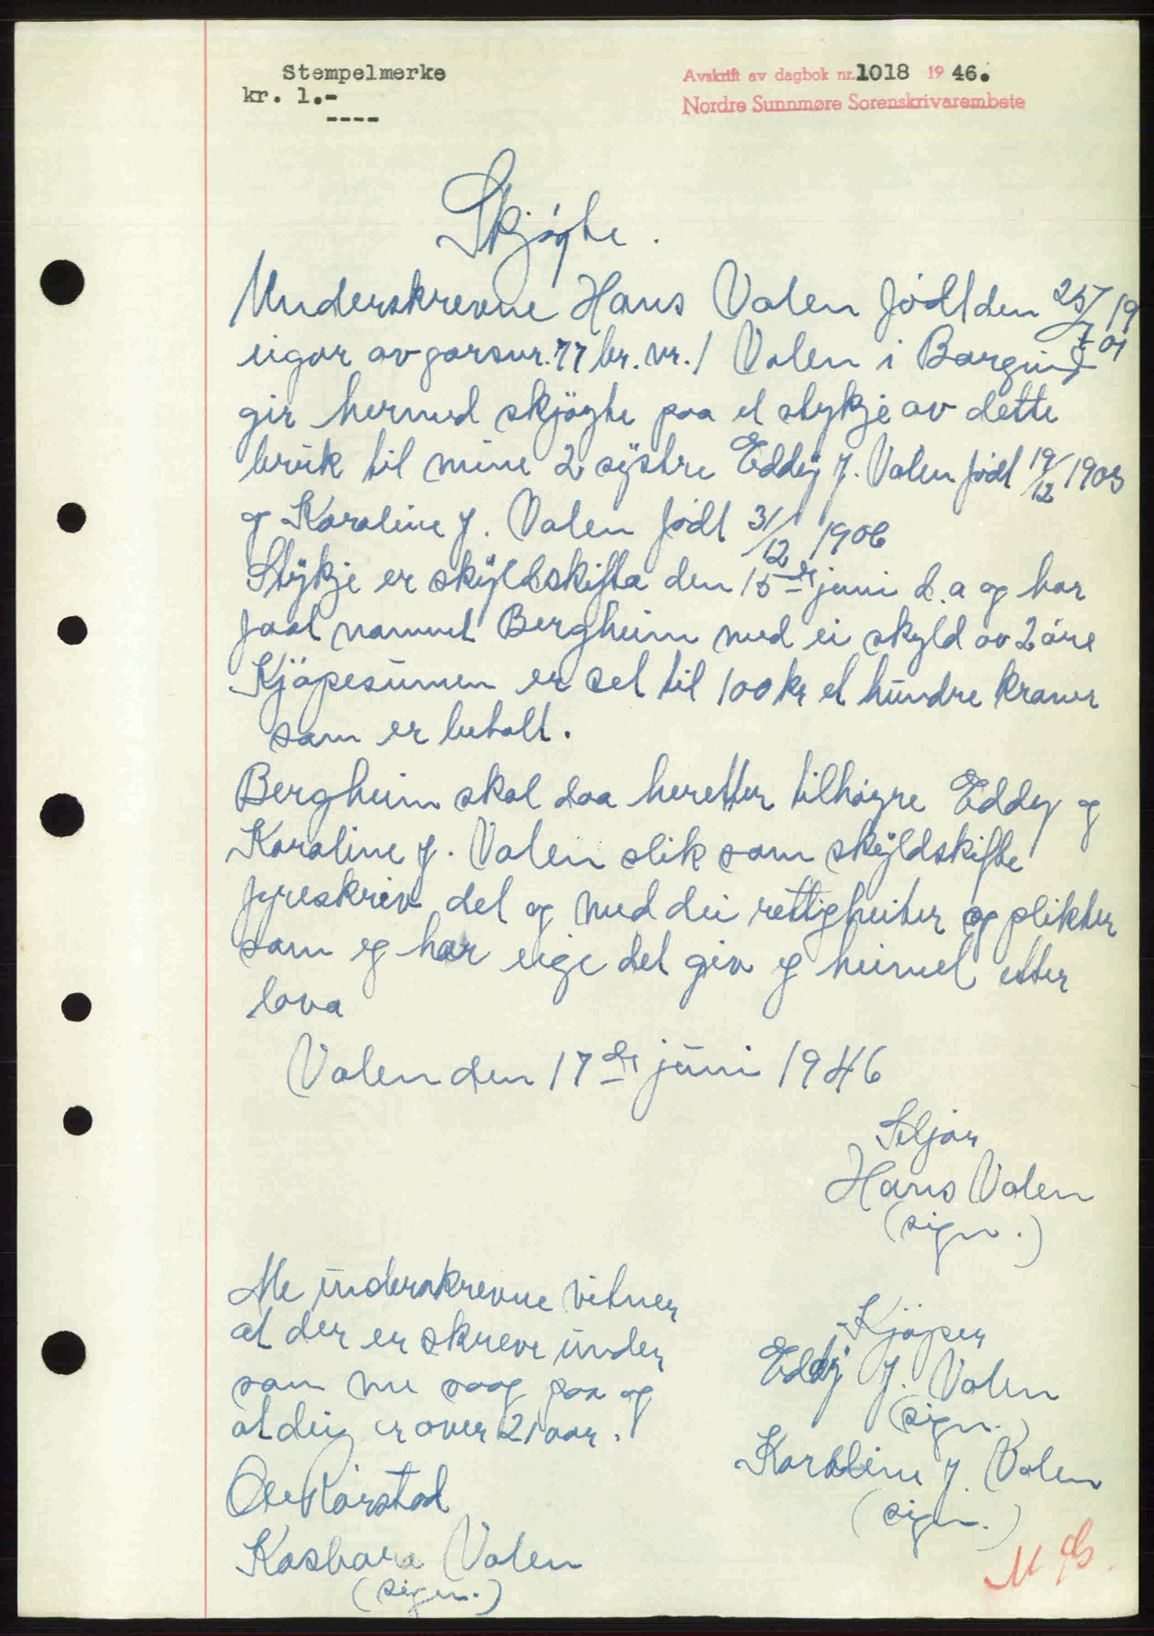 Stempelmerke
kr. 1.-
----
Avskrift av dagbok nr. 1018 1946.
Nordre Sunnmøre Sorenskrivarembete
Skjøyte.
Underskrevne Hans Valen född den 25/7 1901
eigar av garsnr. 77 br. nr. 1 Valen i Borgund
gir hermed skjöyte paa et stykje av dette
bruk til mine 2 systre Eddy J. Valen född 19/12 1903
og Karoline J. Valen född 31/12 1906
Stykje er skyldskifta den 15de juni d.a og har
faat namnet Bergheim med ei skyld av 2 öre
Kjöpesummen er set til 100 kr et hundre kroner
som er betalt.
Bergheim skal daa heretter tilhöyre Eddy og
Karoline J. Valen slik som skyldskifte
fyreskriv det og med dei rettigheiter og plikter
som eg har eige det giv eg heimel etter
lova
Valen den 17de juni 1946
Seljar
Hans Valen
(sign.)
Me underskrevne vitner
at der er skreve under
som me saag paa og
at dei er over 21 aar.
Ole Rörstad
Kasbara Valen
(sign.)
Kjöper
Eddy J. Valen
(sign.)
Karoline J. Valen
(sign.)